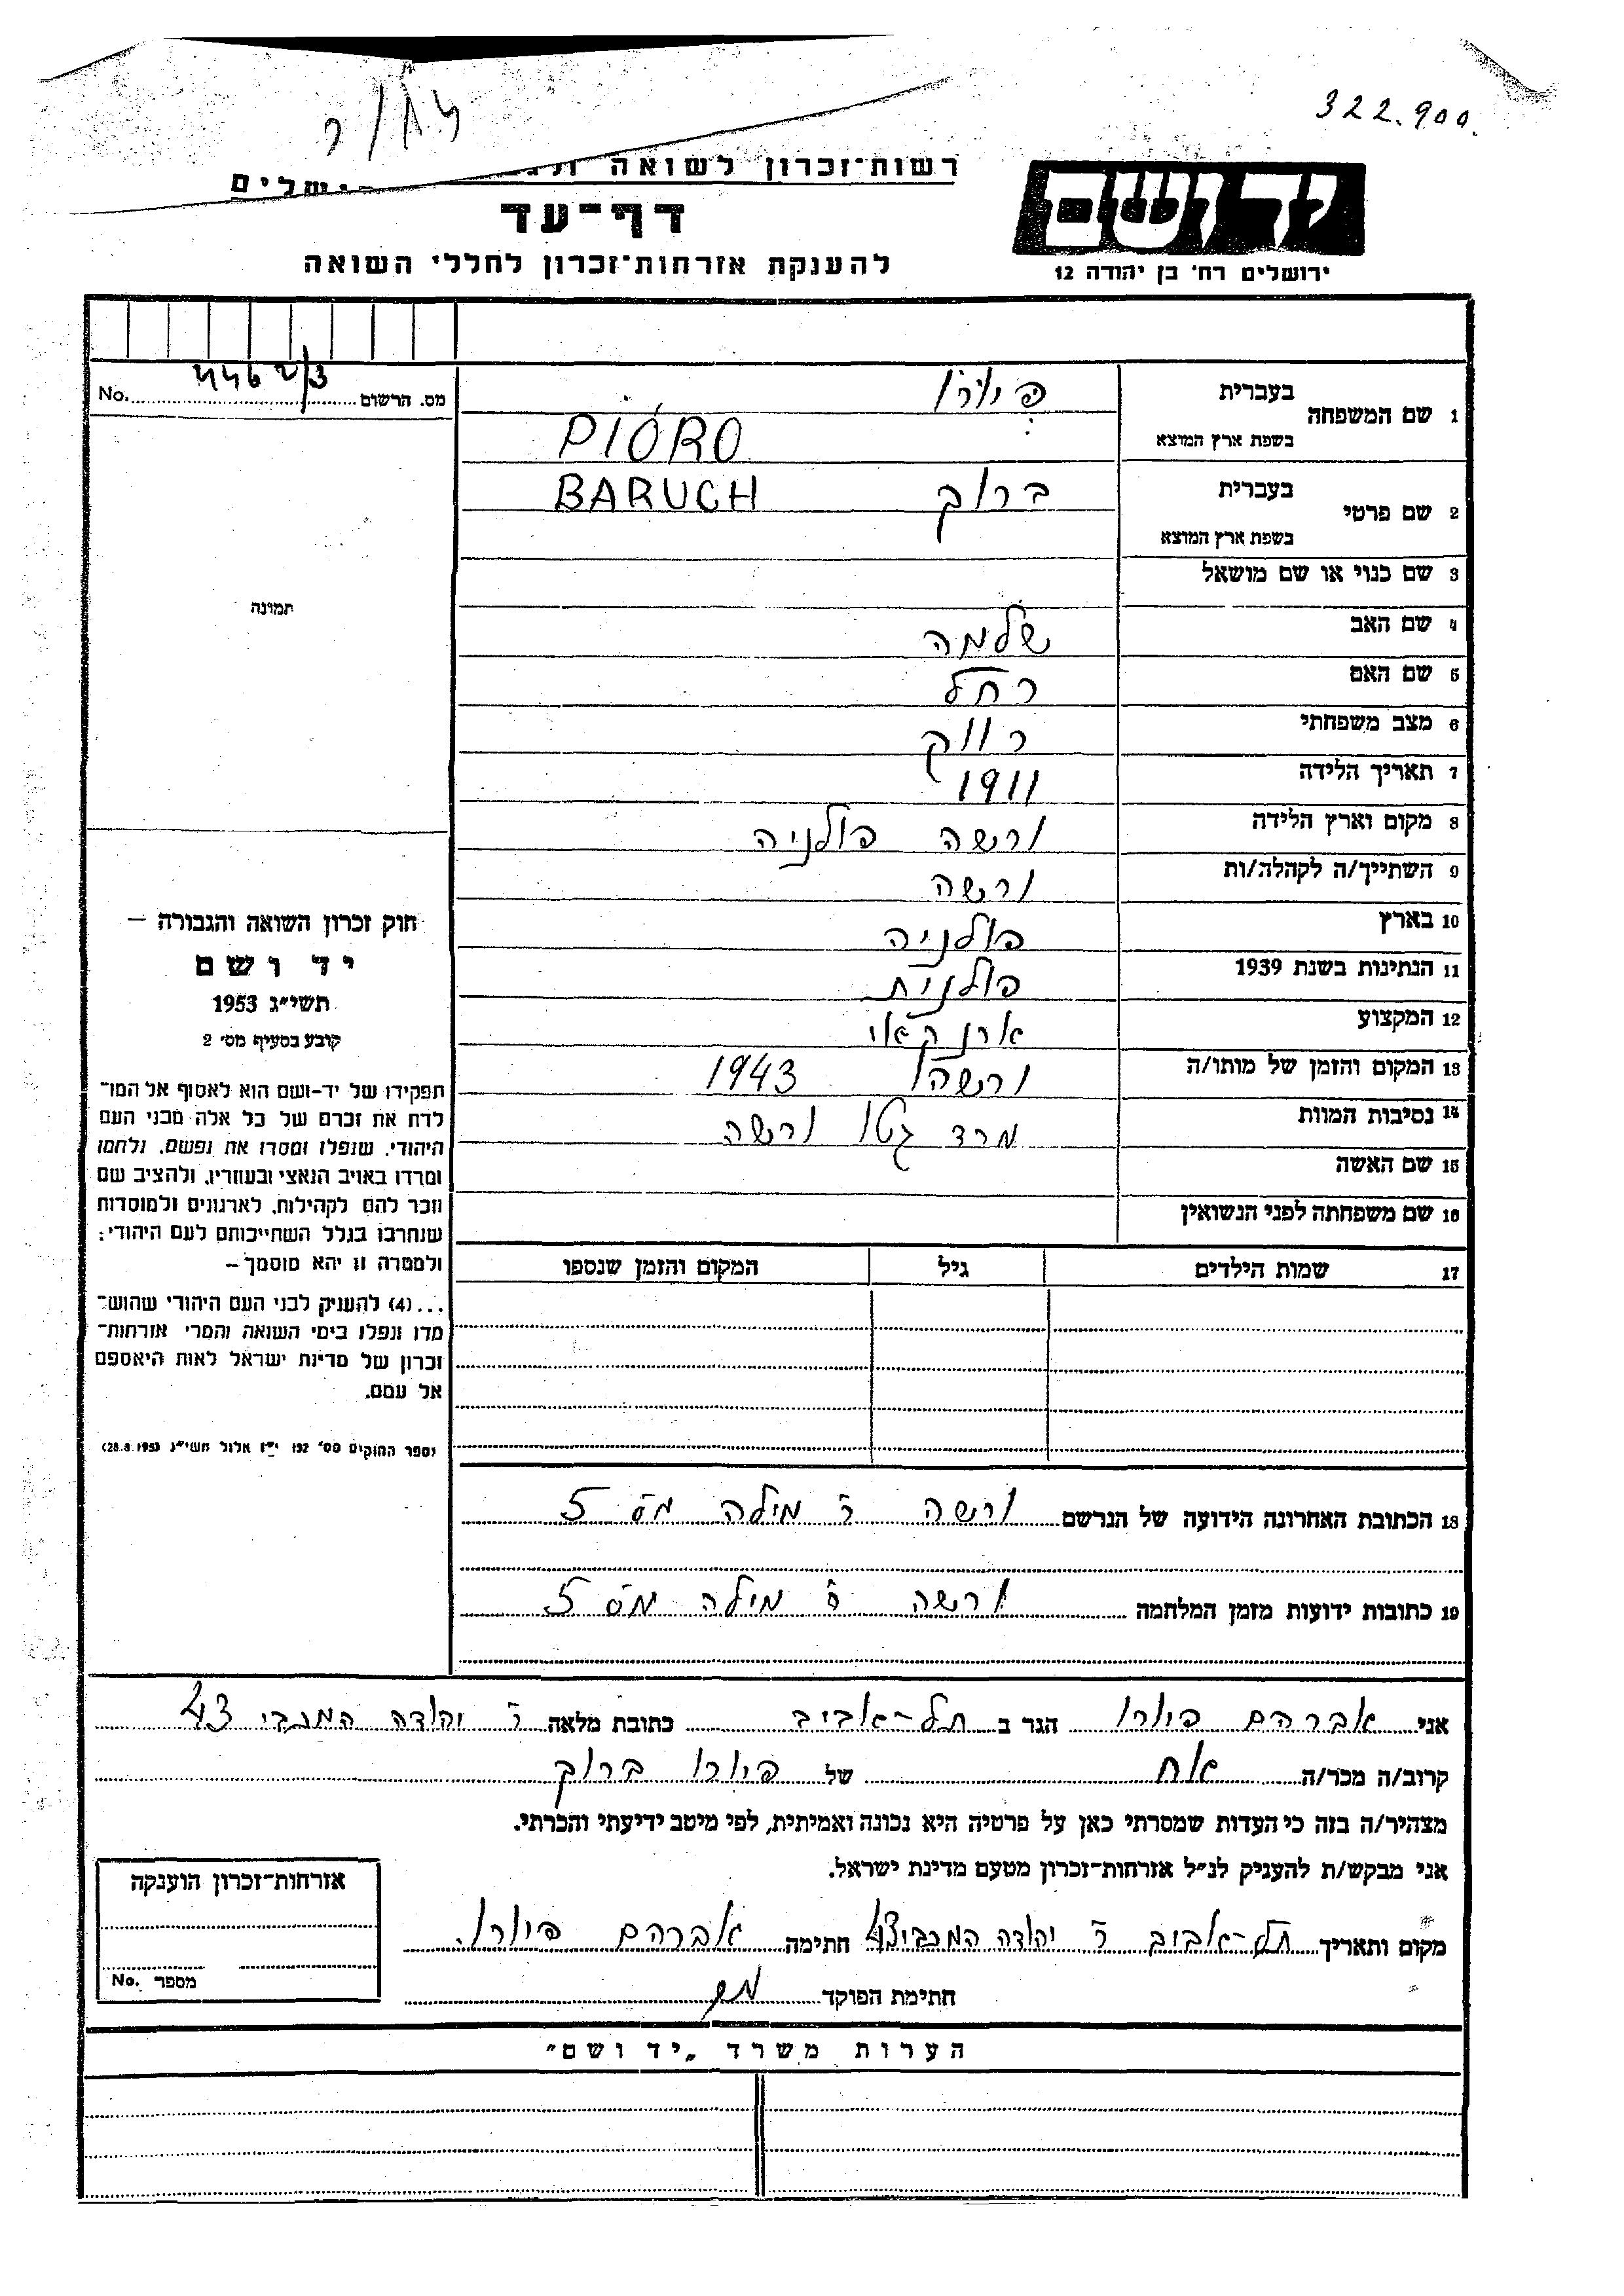 322.900.
רשות־זכרון לשואה
דף־עד
להענקת אזרחות־זכרון לחללי השואה
ידושם
ירושלים רח' בן יהודה 12
מס. הרשום No.
1 שם המשפחה בעברית פיורו
בשפת ארץ המוצא PIÓRO
2 שם פרטי בעברית ברוך BARUCH
בשפת ארץ המוצא
3 שם כנוי או שם מושאל
תמונה
4 שם האב שלמה
5 שם האם רחל
6 מצב משפחתי רווק
7 תאריך הלידה 1911
8 מקום וארץ הלידה ורשה פולניה
9 השתייך/ה לקהלה/ות ורשה
10 בארץ פולניה
11 הנתינות בשנת 1939 פולנית
12 המקצוע
13 המקום והזמן של מותו/ה ורשה 1943
14 נסיבות המוות מרד גטו ורשה
15 שם האשה
16 שם משפחתה לפני הנשואין
17 שמות הילדים גיל המקום והזמן שנספו
חוק זכרון השואה והגבורה –
יד ושם
תשי״ג 1953
קובע בסעיף מס׳ 2
תפקידו של יד-ושם הוא לאסוף אל המו־
לדת את זכרם של כל אלה מבני העם
היהודי, שנפלו ומסרו את נפשם, נלחמו
ומרדו באויב הנאצי ובעוזריו, ולהציב שם
וזכר להם לקהילות, לארגונים ולמוסדות
שנחרבו בגלל השתייכותם לעם היהודי:
ולמטרה זו יהא מוסמך –
...(4) להעניק לבני העם היהודי שהוש־
מדו ונפלו בימי השואה והמרי אזרחות־
זכרון של מדינת ישראל לאות היאספם
אל עמם.
(ספר החוקים מס׳ 132 י״ז אלול תשי״ג 28.8.1953)
18 הכתובת האחרונה הידועה של הנרשם ורשה ר' מילה מס 5
19 כתובות ידועות מזמן המלחמה ורשה ר' מילה מס 5
אני אברהם פיורו הגר ב תל-אביב כתובת מלאה ר' יהודה המכבי 43
קרוב/ה מכר/ה אח של פיורו ברוך
מצהיר/ה בזה כי העדות שמסרתי כאן על פרטיה היא נכונה ואמיתית, לפי מיטב ידיעתי והכרתי.
אני מבקש/ת להעניק לנ״ל אזרחות־זכרון מטעם מדינת ישראל.
מקום ותאריך תל-אביב ר' יהודה המכבי 43 חתימה אברהם פיורו.
חתימת הפוקד
אזרחות־זכרון הוענקה
מספר No.
הערות משרד „יד ושם״